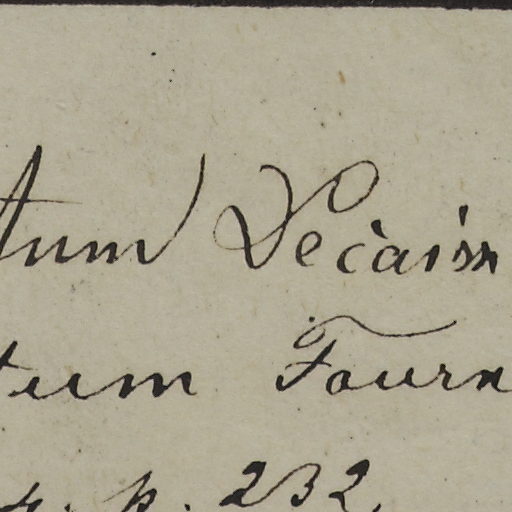 tum) Decaisn
tum Fourn
p. 232,